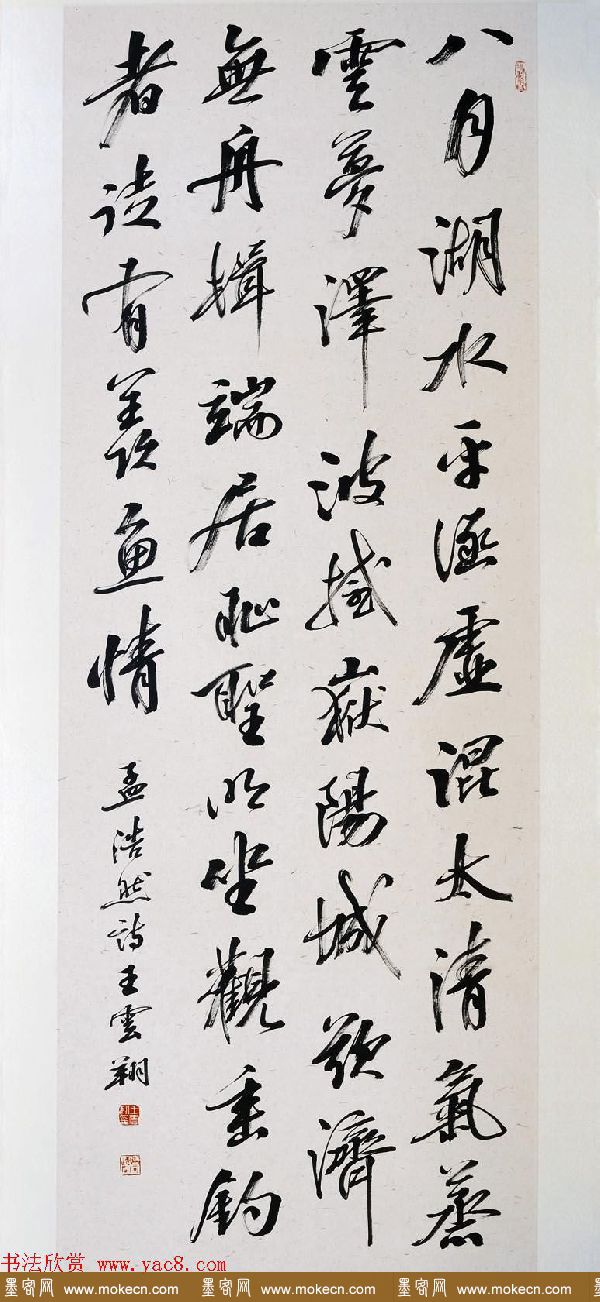 八月湖水平涵虛混太清氣蒸
雲夢澤波撼嶽陽城欲濟
無舟楫端居恥聖明坐觀垂釣
者徒有羨魚情
孟浩然詩王雲翔
书法欣赏 www.yac8.com
墨客网 www.mokecn.com 墨客网 www.mokecn.com 墨客网 www.mokecn.com